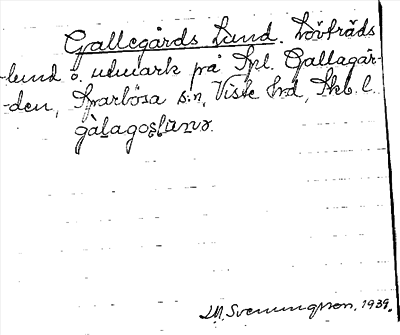 Gallegårds Lund. Lövträds
-lund o. utmark på Spl. Gallagår-
-den, Sparlösa sn, Viste hrd, Skb. l.
gàlagoʂlɯnər.
LM. Svenungsson, 1939.